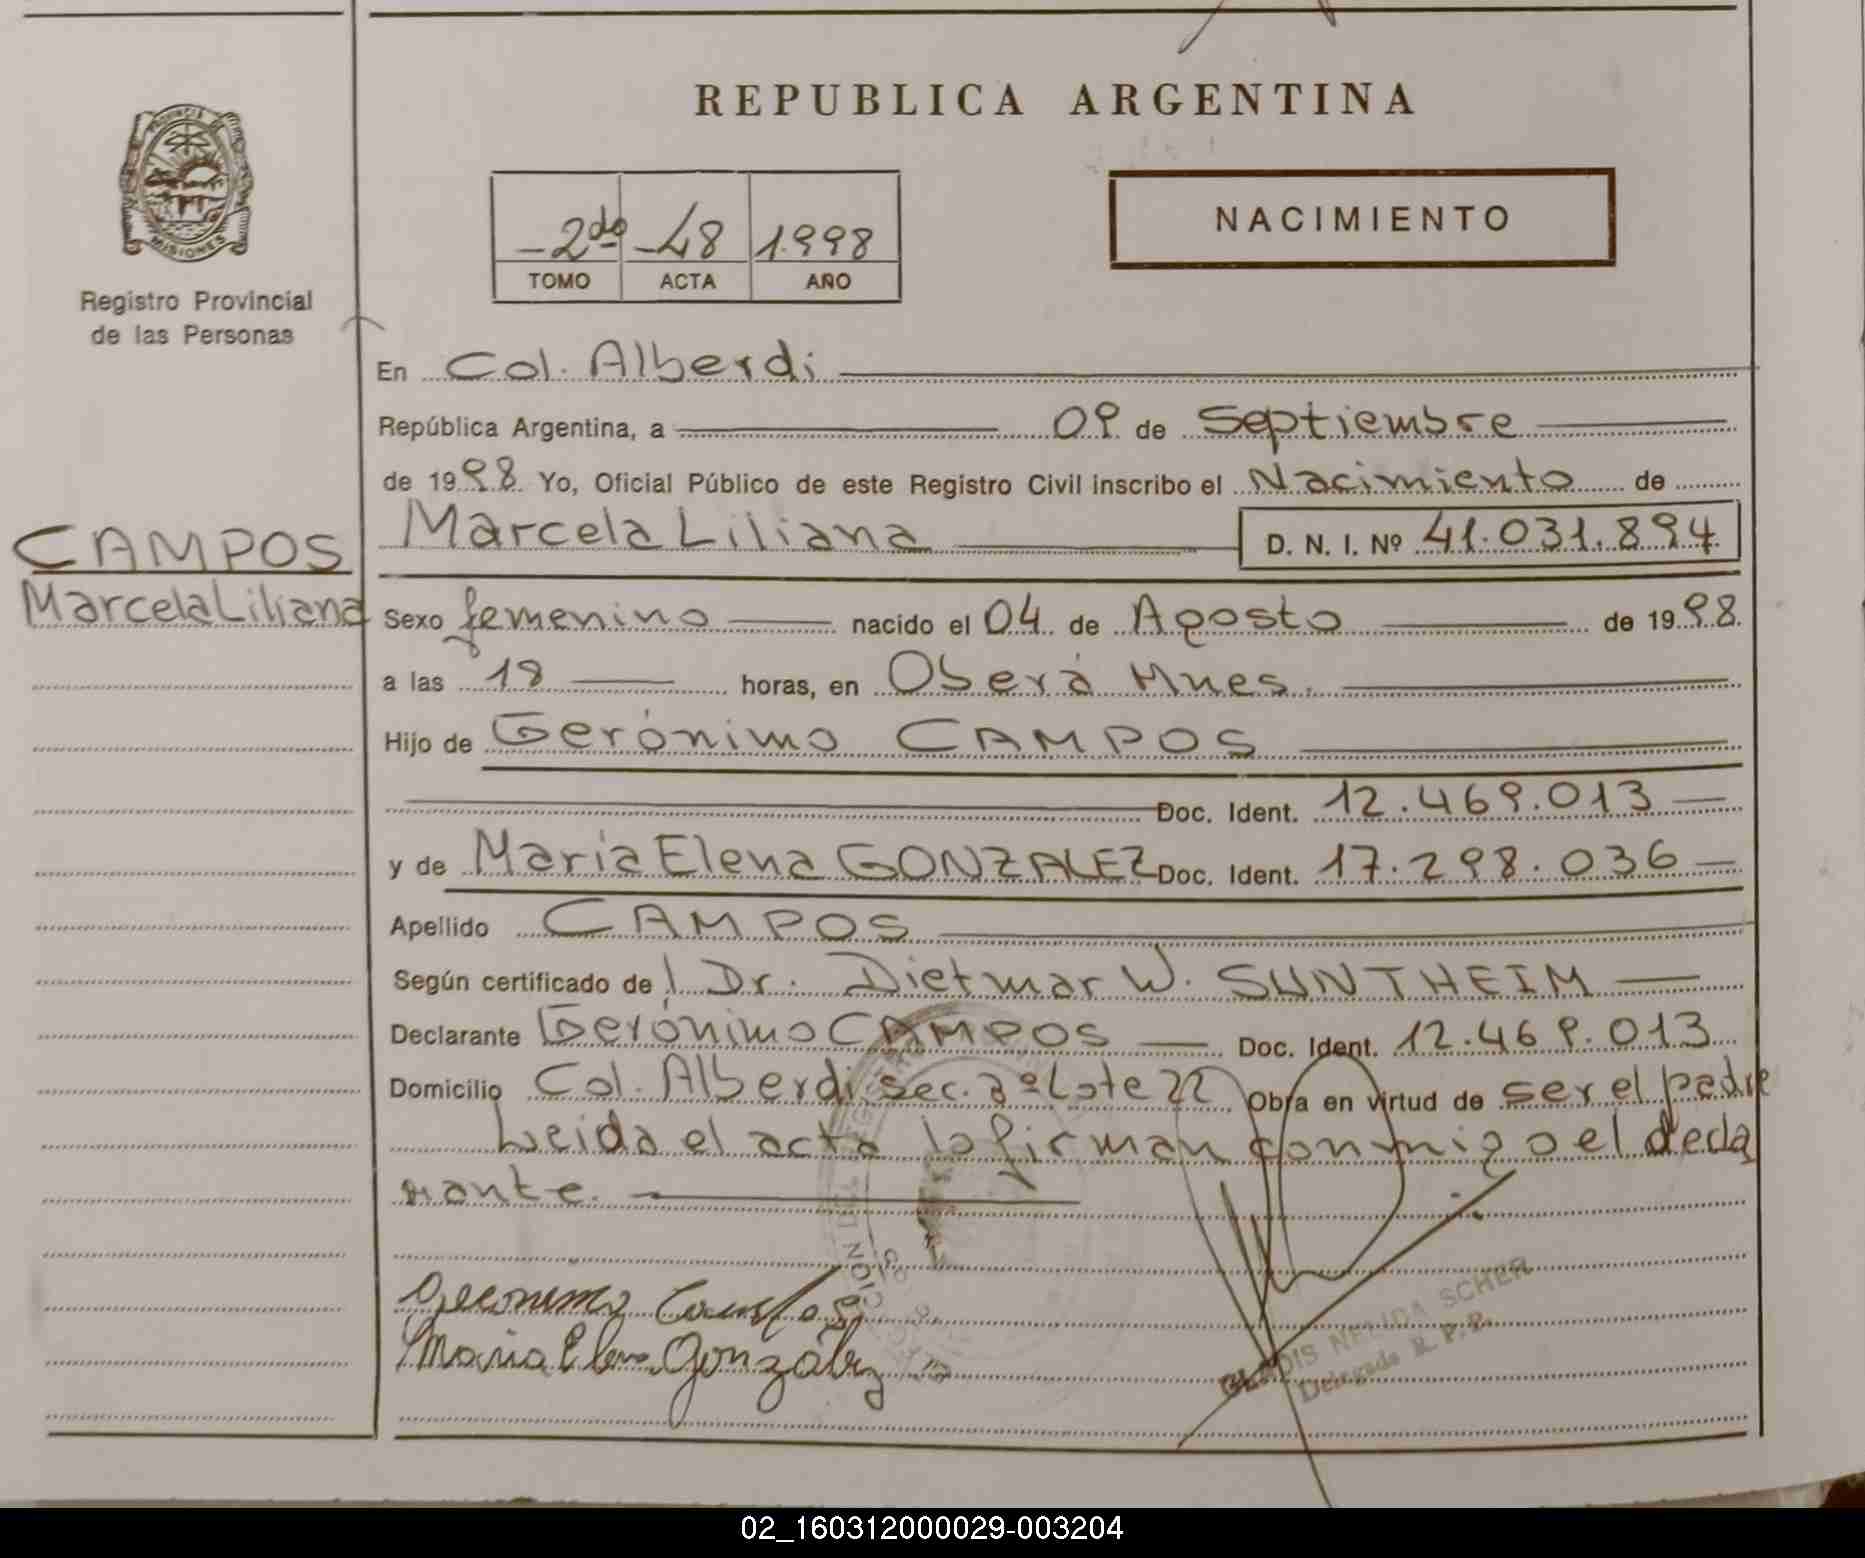 REPUBLICA ARGENTINA
PROVINCIA DE MISIONES
Registro Provincial
de las Personas
NACIMIENTO
2do 48 1.998
TOMO ACTA AÑO
En Col. Alberdi
República Argentina, a 09 de Septiembre
de 1998 Yo, Oficial Público de este Registro Civil inscribo el Nacimiento de
CAMPOS
Marcela Liliana
Marcela Liliana D. N. I. Nº 41.031.894
Sexo femenino nacido el 04 de Agosto de 1998.
a las 18 horas, en Oberá Mnes.
Hijo de Gerónimo CAMPOS
Doc. Ident. 12.469.013
y de María Elena GONZALEZ Doc. Ident. 17.298.036
Apellido CAMPOS
Según certificado del Dr. Dietmar W. SUNTHEIM
Declarante Gerónimo CAMPOS Doc. Ident. 12.469.013
Domicilio Col. Alberdi sec. 2º Lote 22 Obra en virtud de ser el padre
Leida el acta la firman conmigo el decla
rante.
Geronimo Campos
Maria Elena González
GLADIS NELIDA SCHER
Delegada R. P. P.
02_160312000029-003204